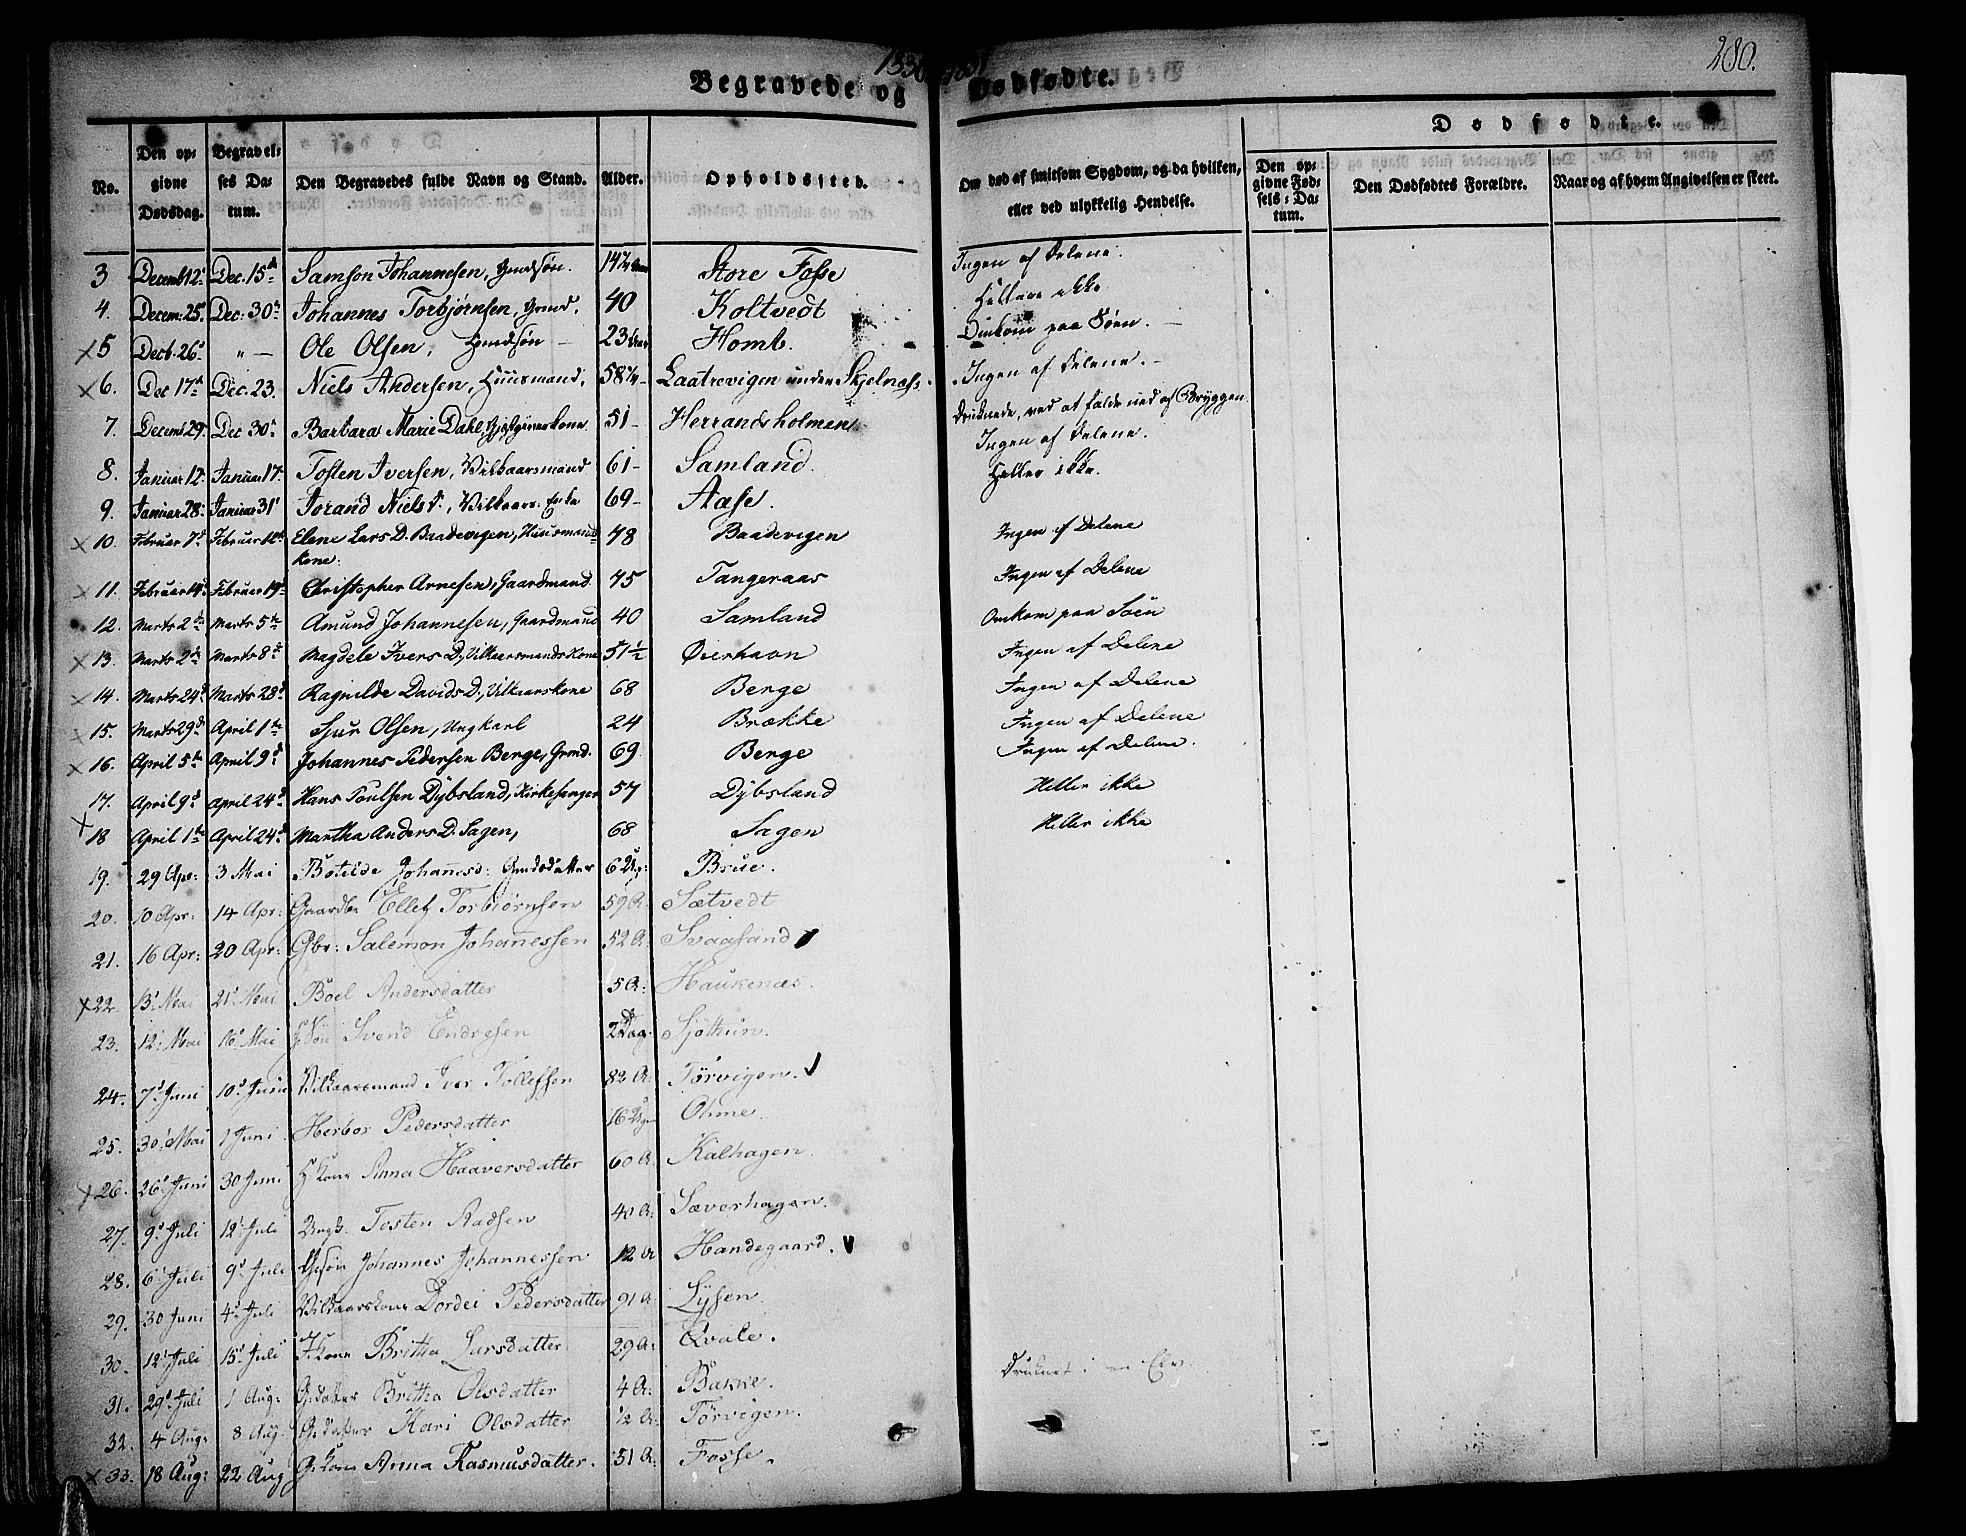 1830 1831
280.
Begravede og Dødfødte.
Dødfødte.
No. | Den opgivne Dødsdag. | Begravelses Datum. | Den Begravedes fulde Navn og Stand. | Alder. | Opholdssted. | Om død af smitsom Sygdom, og da hvilken, eller ved ulykkelig Hendelse. | Den opgivne Fødsels-Datum. | Den Dødfødtes Forældre. | Naar og af hvem Angivelsen er skeet.
3 | Decemb 12 | Dec. 15de | Samson Johannesen, Gmdsøn. | 14 | Store Fosse | Ingen af Delene.
4. | Decem: 25 | Dec: 30te | Johannes Torbjørnsen, Grmd. | 40 | Koltvedt | Hellere ikke
x 5 | Decb. 26 | " — | Ole Olsen, Gmdsøn — | 23 | Homb. | Omkom paa Søen. —
x 6. | Dec 17de | Dec. 23. | Niels Andersen, Huusmand, | 58 | Laatrevigen under Skjelnæss. | Ingen af Delene. —
7. | Decemb 29 | Dec 30 | Barbara Marie Dahl, | 51 — | Herrandsholmen | Druknede, ved at falde ned af Bryggen.
Ingen af Delene.
8. | Januar 12 | Januar 17 | Tosten Iversen, Vilkaarsmand | 61 — | Samland. | Heller ikke.
9. | Januar 28 | Januar 31 | Torand Niels D., Vilkaars: Enke | 69 — | Aase.
x 10. | Februar 7de | Februar | Elene Lars D. Baadevigen, Huusmands
kone. | 78 | Baadevigen | Ingen af Delene
x 11. | Februar 14 | Februar 19 | Christopher Arnesen, Gaardmand | 75 | Tangeraas | Ingen af Delene
12. | Marts 2de | Marts 5te | Amund Johannesen, Gaardmand | 40 | Samland | Omkom paa Søen
x 13. | Marts 2de | Marts 8de | Magdele Ivers D., Vilkaarsmands Kone | 51½ | Øierhavn | Ingen af Delene
x 14. | Marts 24 | Marts 28 | Ragnilde Davids D., Vilkaarskone | 68 | Berge | Ingen af Delene
x 15. | Marts 29de | April 1te | Sjur Olsen, Ungkarl | 24 | Brække | Ingen af Delene
x 16. | April 5te | April 9d | Johannes Pedersen Berge, Grmd. | 69. | Berge | Ingen af Delene.
17. | April 9d | April 24d | Hans Poulsen Dybsland, Kirkesanger | 57 | Dybsland | Heller ikke
x 18 | April 1te | April 24d | Martha Anders D. Sagen, | 68 | Sagen | Heller ikke
19. | 29 Apr: | 3 Mai | Botilde Johannesd: Gmdsdatter | 6 Ug: | Brue.
20. | 10 Apr: | 14 Apr: | Gaardbr Ellef Torbiørnsen | 59 A. | Sætvedt
21. | 16 Apr: | 20 Apr: | Gbr: Salemon Johannessen | 52 A: | Svaasand
x 22. | 13 Mai | 21 Mai | Boel Andersdatter | 5 A: | Haukenæs.
23. | 12 Mai | 16 Mai | Svend Endresen | 2 Dag. | Sjøthun.
24. | 7 Juni | 10 Juni | Vilkaarsmand Iver Tollefsen | 82 A. | Tørvigen.
25. | 30 Mai | 1 Juni | Herbor Pedersdatter | 16 Uger | Ohme.
x 26. | 26 Juni | 30 Juni | H. Kone Anna Haaversdatter | 60 A. | Kalhagen.
27. | 9 Juli | 12 Juli | Ungk. Tosten Radsen | 40 A: | Sæverhagen.
28. | 6 Juli | 9 Juli | Gsøn Johannes Johannessen | 12 A | Handegaard.
29. | 30 Juni | 4 Juli | Vilkaarskone Dordei Pedersdatter | 91 A | Lysen
30. | 12 Juli | 15 Juli | Kone Britha Larsdatter | 29 A: | Qvale.
31. | 29 Juli | 1 Aug: | Gdatter Britha Olsdatter | 4 A: | Bakke. | Druknet i en Elv.
32. | 4 Aug: | 8 Aug. | Gdatter Kari Olsdatter | ½ A: | Tørvigen.
x 33. | 18 Aug: | 22 Aug | G. Kone Anna Rasmusdatter. | 51 A: | Fosse.